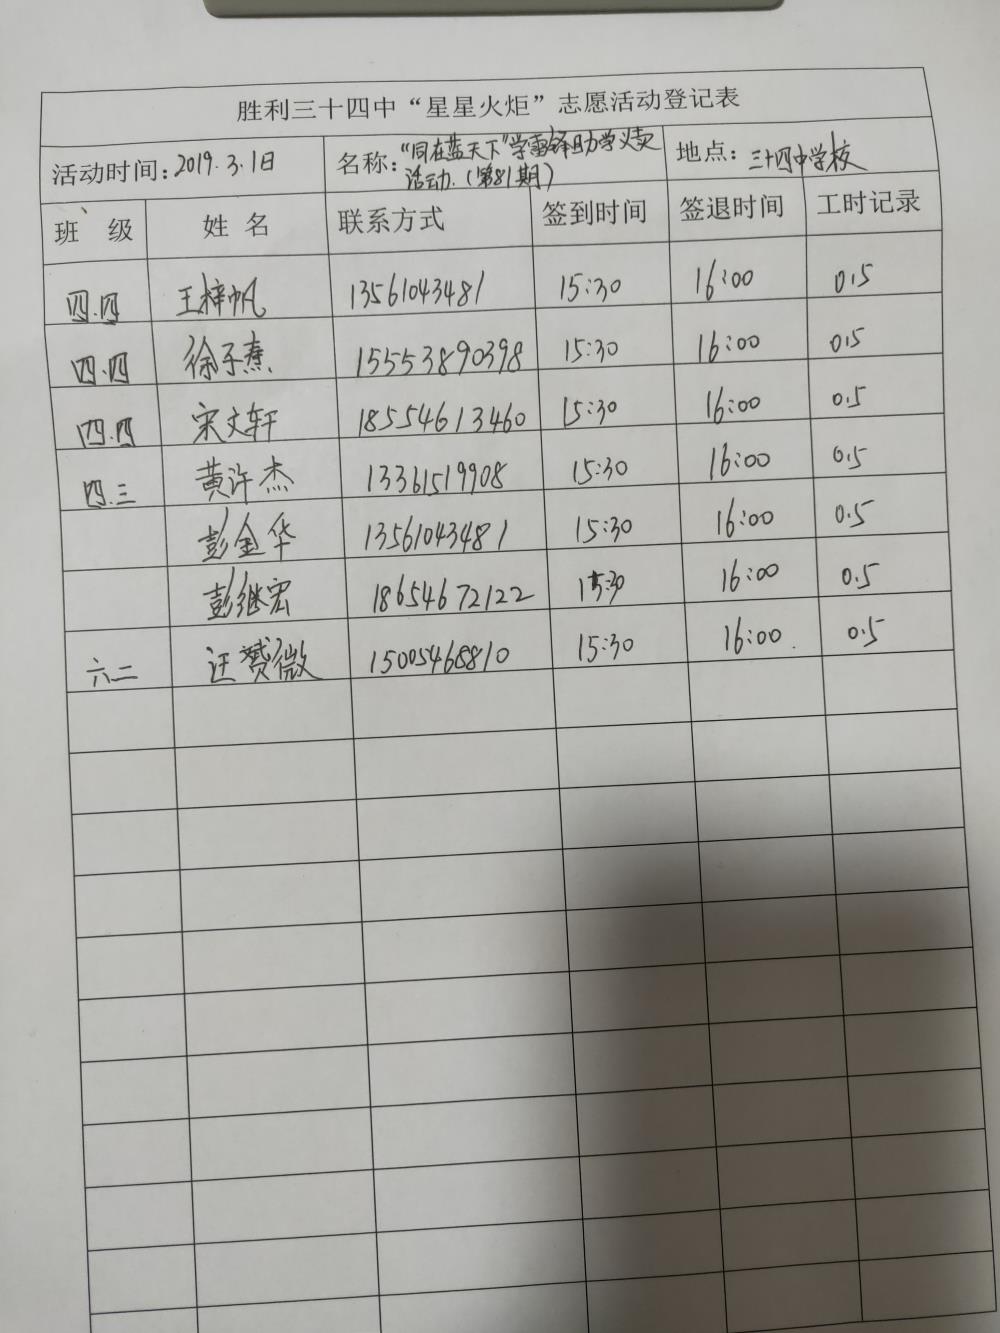 胜利三十四中“星星火炬”志愿活动登记表
活动时间：2019.3.1日 名称：“同在蓝天下”学雷锋助学义卖活动.（第81期） 地点：三十四中学校
班 级 姓 名 联系方式 签到时间 签退时间 工时记录
四.四 王梓帆 13561043481 15:30 16:00 0.5
四.四 徐子熹 15553890398 15:30 16:00 0.5
四.四 宋文轩 18554613460 15:30 16:00 0.5
四.三 黄许杰 13361519908 15:30 16:00 0.5
彭金华 13561043481 15:30 16:00 0.5
彭继宏 18654672122 15:30 16:00 0.5
六二 赟微 15005468810 15:30 16:00 0.5